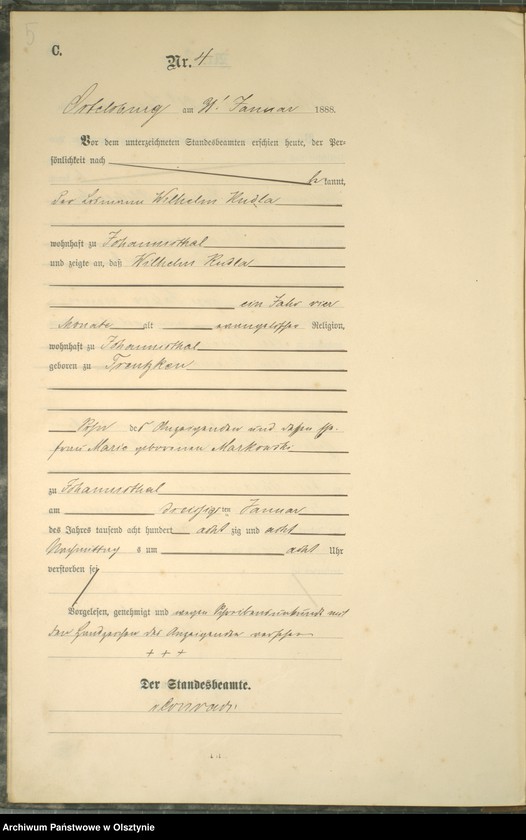 5
C.
Nr. 4
Ortelsburg am 31t Januar 1888.
Vor dem unterzeichneten Standesbeamten erschien heute, der Per-
sönlichkeit nach
be kannt,
der Losmann Wilhelm Kudla
wohnhaft zu Johannesthal
und zeigte an, daß Wilhelm Kudla
ein Jahr vier
Monate alt evangelischer Religion,
wohnhaft zu Johannesthal
geboren zu
Sohn des Anzeigenden und dessen Ehe-
frau Marie geborenen Markowski
zu Johannesthal
am dreißigsten Januar
des Jahres tausend acht hundert acht zig und acht
Nachmittags um acht Uhr
verstorben sei
Vorgelesen, genehmigt und wegen Schreibensunkunde mit
den Handzeichen des Anzeigenden versehen
+ + +
Der Standesbeamte.
Archiwum Państwowe w Olsztynie